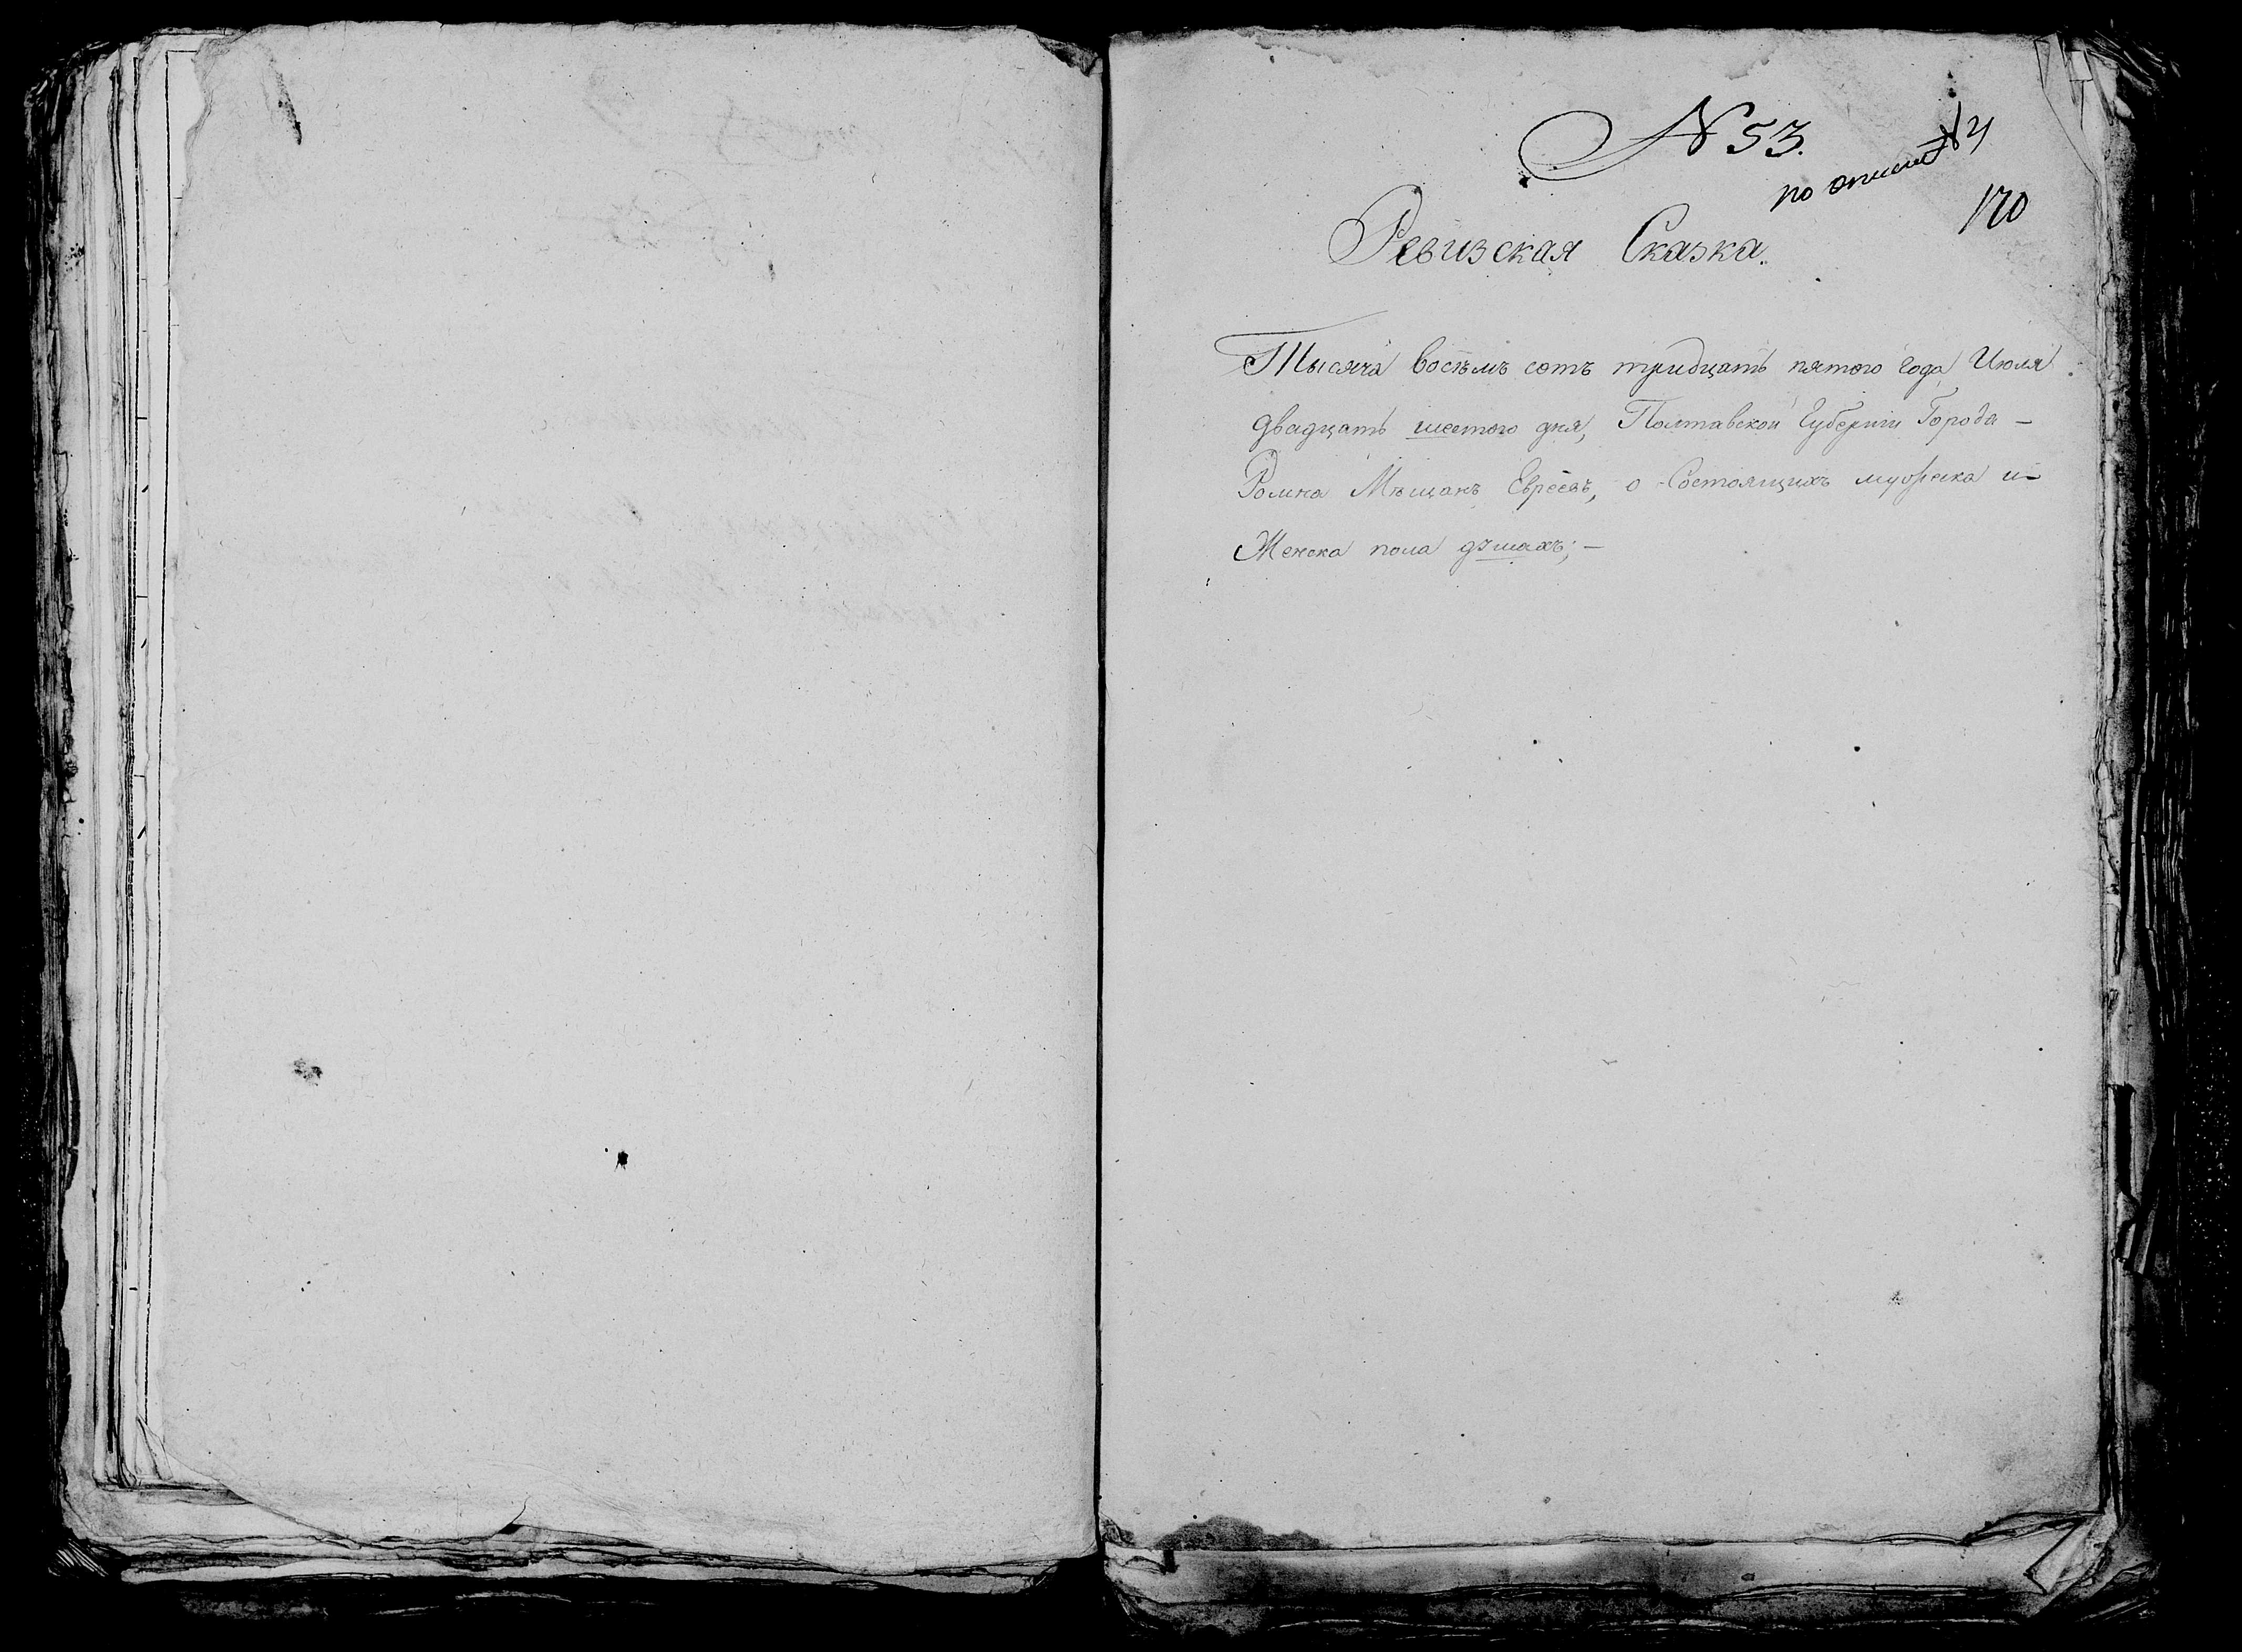 N 53.
по описи №
170
Ревизская Сказка.
Тысяча восѣмъ сотъ тридцать пятого года Июля
двадцать шестого дня, Полтавской Губернии Города -
Ромна Мѣщанъ Евреевъ, о Состоящихъ мужеска и -
Женска пола душахъ; -